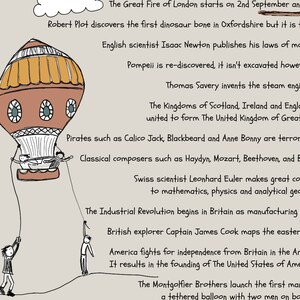 The Great Fire of London starts on 2nd September an
Robert Plot discovers the first dinosaur bone in Oxfordshire but it is
English scientist Isaac Newton publishes his laws of mo
Pompeii is re-discovered, it isn't excavated howev
Thomas Savery invents the steam engi
The Kingdoms of Scotland, Ireland and Engla
united to form The United Kingdom of Grea
Pirates such as Calico Jack, Blackbeard and Anne Bonny are terror
Classical composers such as Haydyn, Mozart, Beethoven, and B
Swiss scientist Leonhard Euler makes great co
to mathematics, physics and analytical geo
The Industrial Revolution begins in Britain as manufacturing
British explorer Captain James Cook maps the easter
America fights for independence from Britain in the Am
It results in the founding of The United States of Am
The Montgolfier Brothers launch the first ma
a tethered balloon with two men on bo